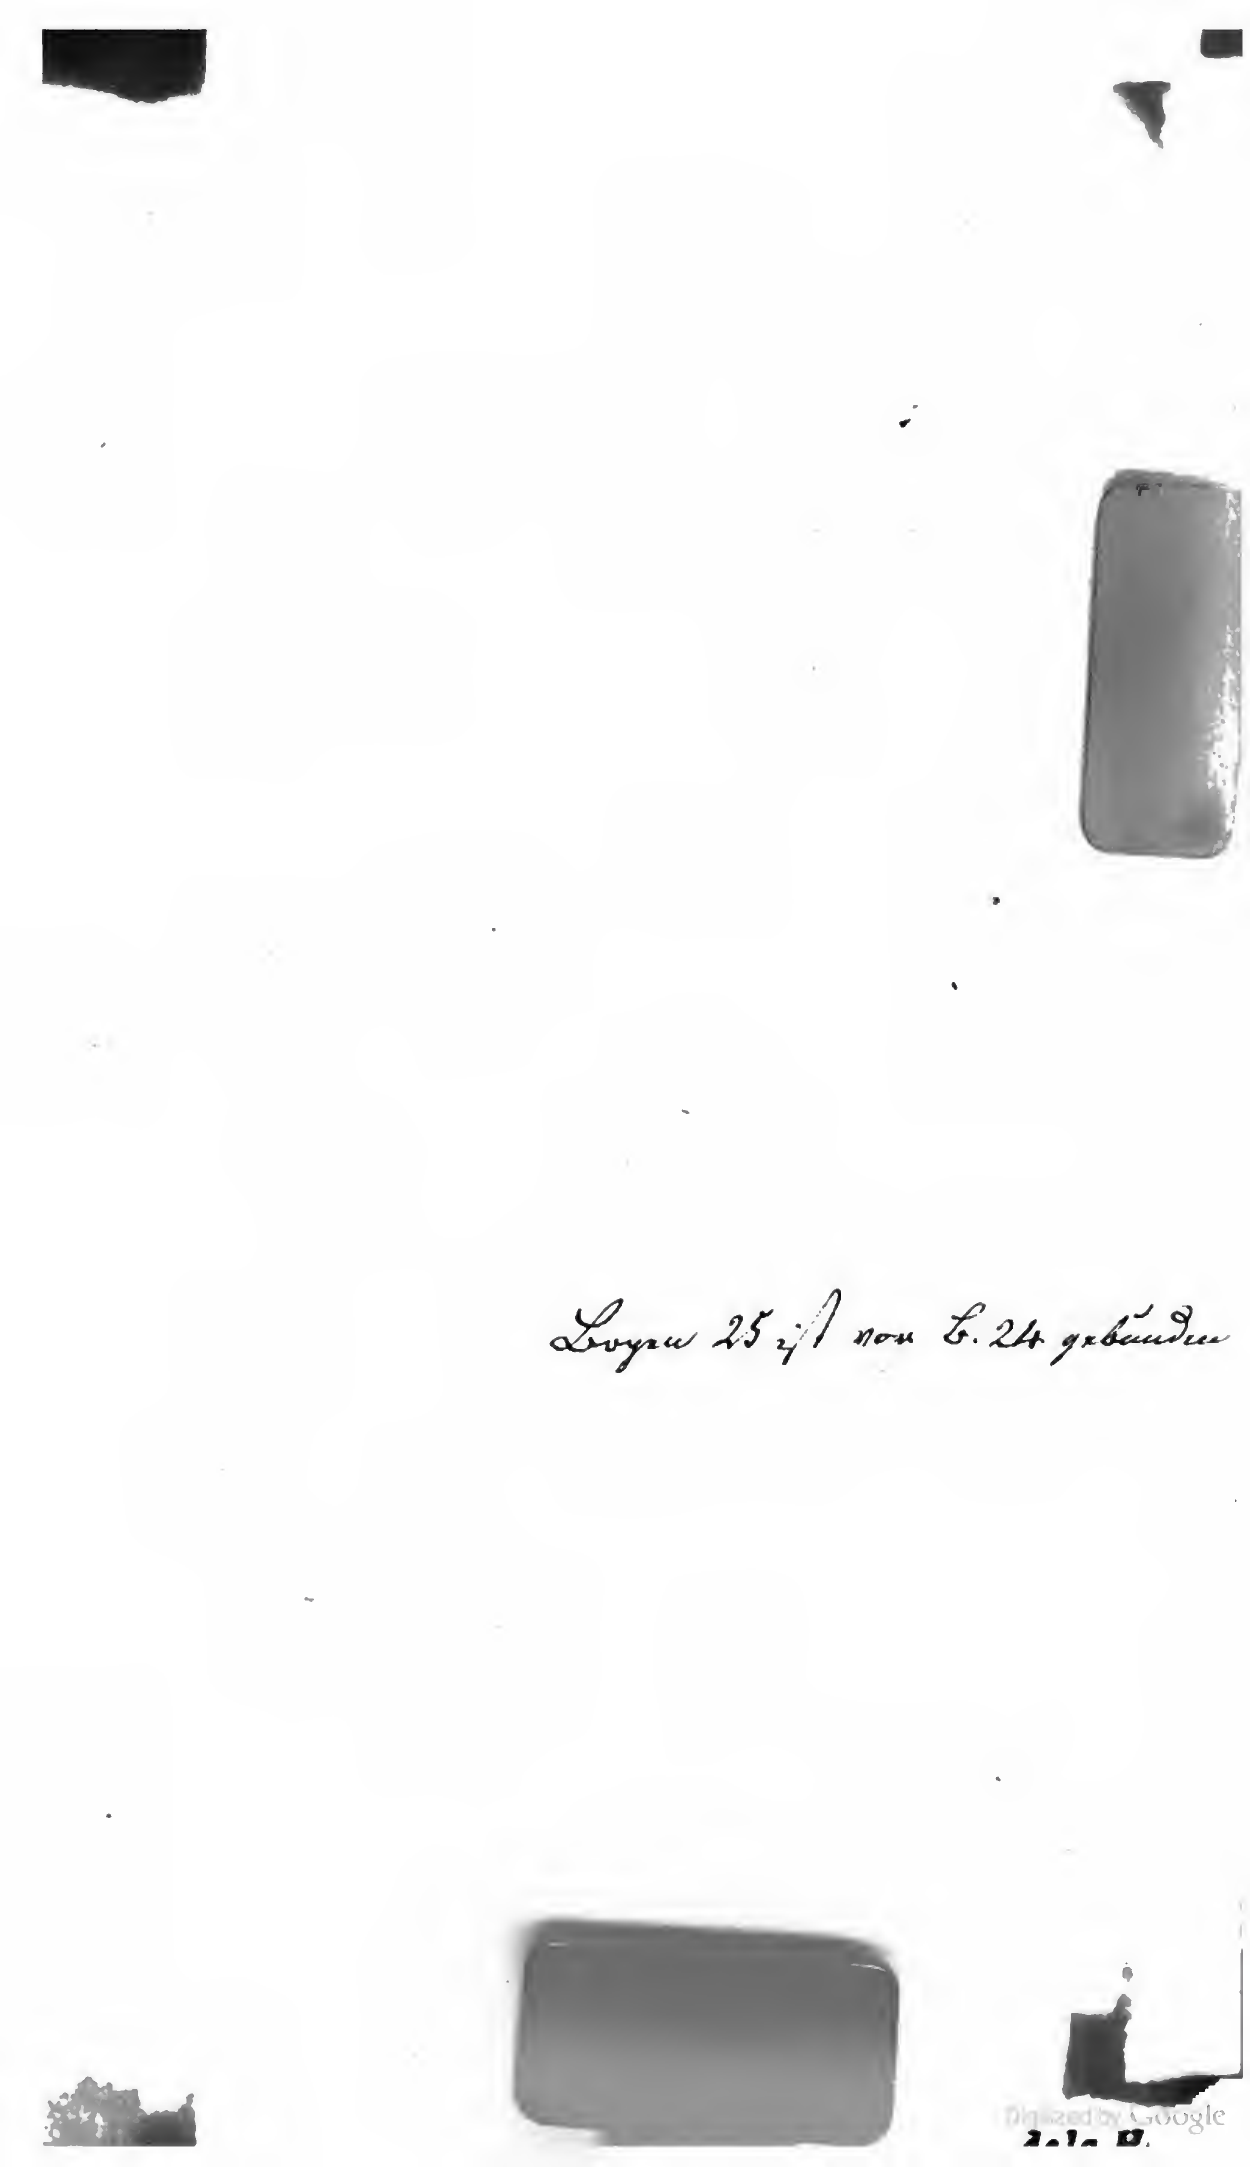 Bogen 25 ist vor B. 24 gebunden
Digitized by Google